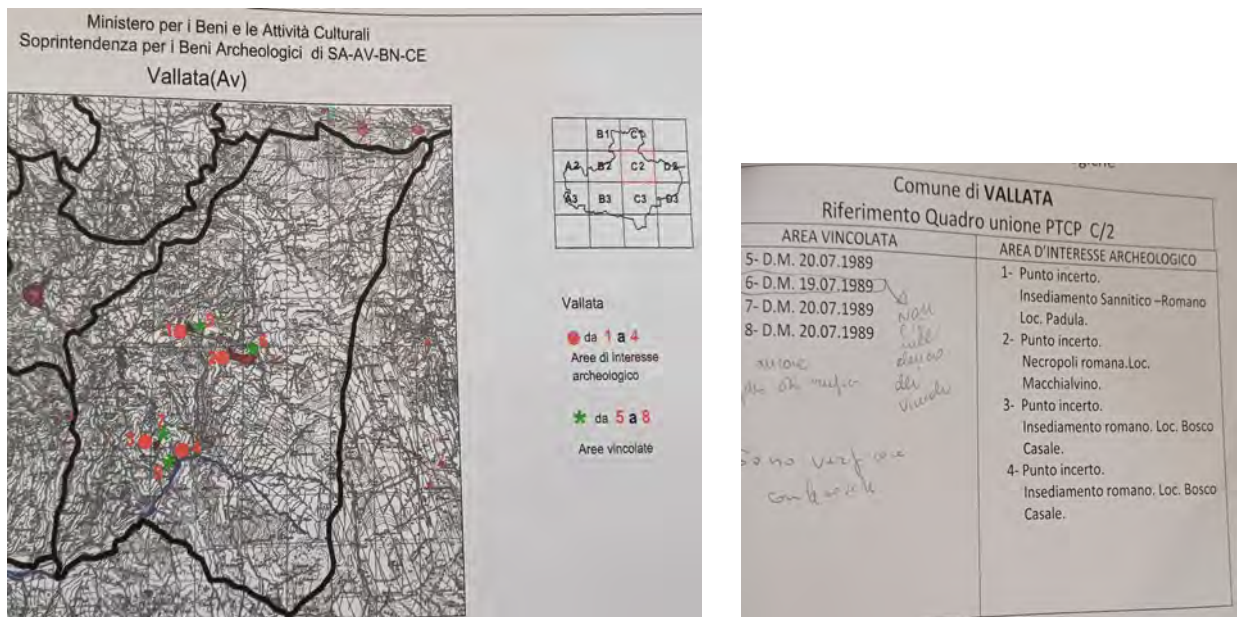 Ministero per i Beni e le Attività Culturali
Soprintendenza per i Beni Archeologici di SA-AV-BN-CE
Vallata(Av)
B1 C1
A2 B2 C2 D2
A3 B3 C3 D3
Vallata
da 1 a 4
Aree di interesse
archeologico
da 5 a 8
Aree vincolate
1
2
3
4
Comune di VALLATA
Riferimento Quadro unione PTCP C/2
AREA VINCOLATA
5- D.M. 20.07.1989
6- D.M. 19.07.1989
7- D.M. 20.07.1989
8- D.M. 20.07.1989
AREA D'INTERESSE ARCHEOLOGICO
1- Punto incerto.
Insediamento Sannitico –Romano
Loc. Padula.
2- Punto incerto.
Necropoli romana.Loc.
Macchialvino.
3- Punto incerto.
Insediamento romano. Loc. Bosco
Casale.
4- Punto incerto.
Insediamento romano. Loc. Bosco
Casale.